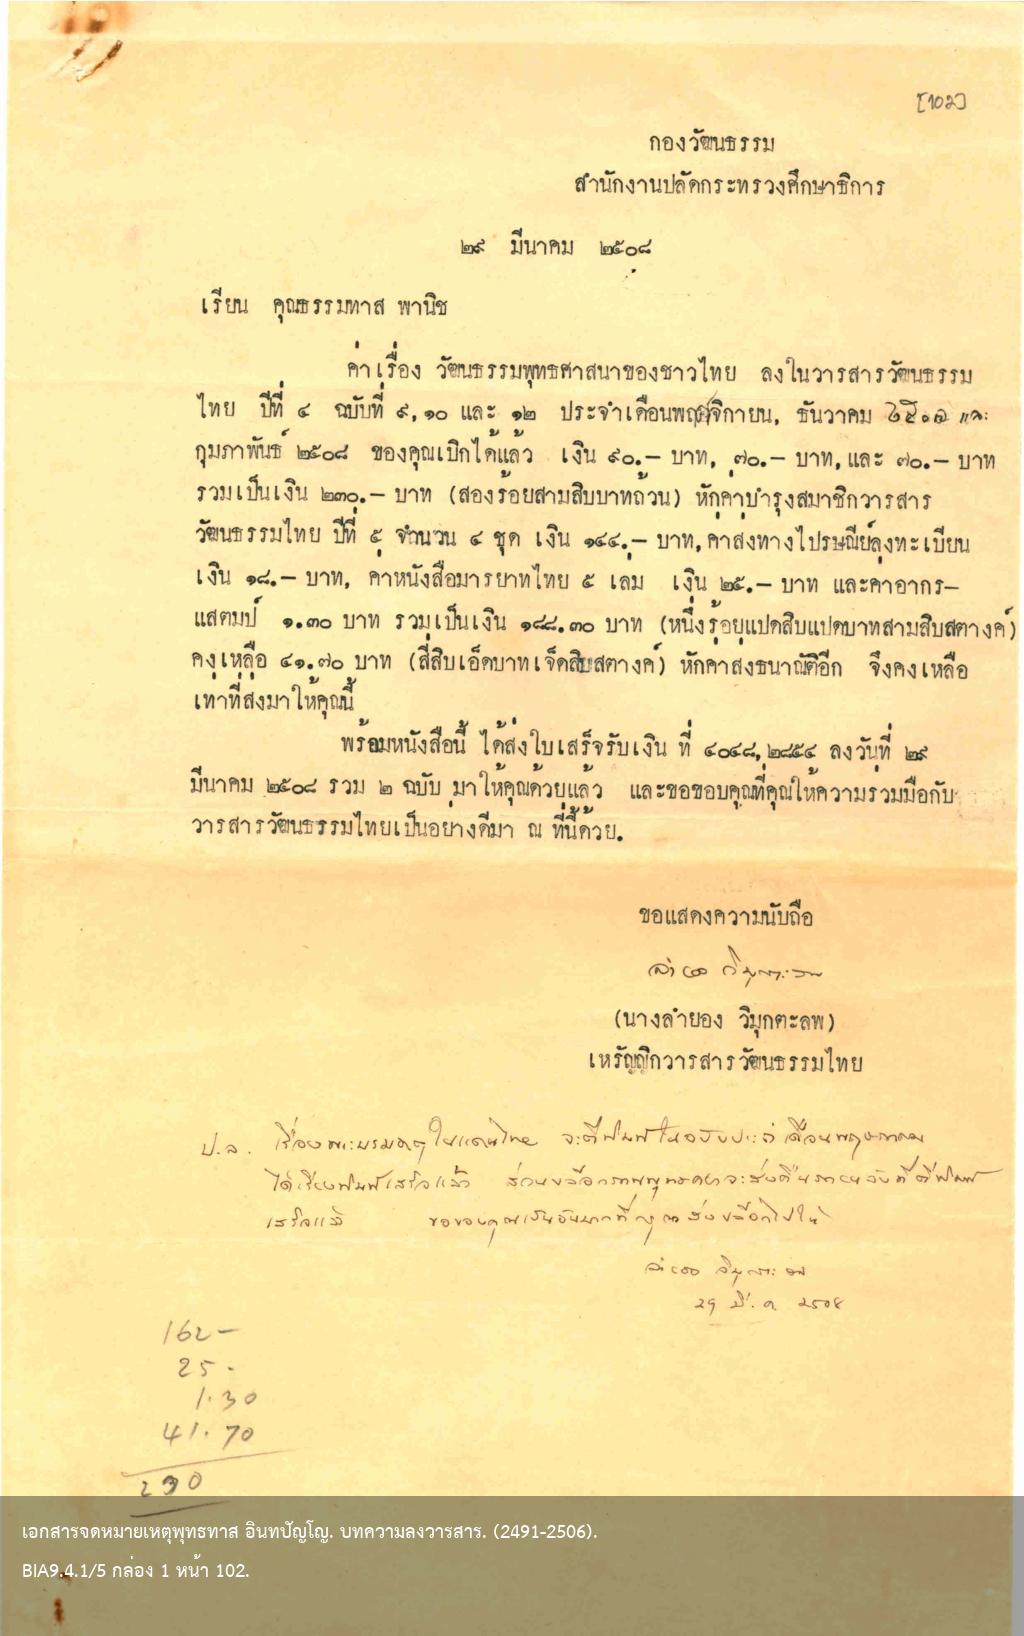 [102]
กองวัฒนธรรม
สำนักงานปลัดกระทรวงศึกษาธิการ
๒๙ มีนาคม ๒๕๐๘
เรียน คุณธรรมทาส พานิช
ค่าเรื่อง วัฒนธรรมพุทธศาสนาของชาวไทย ลงในวารสารวัฒนธรรม
ไทย ปีที่ ๔ ฉบับที่ ๙,๑๐ และ ๑๒ ประจำเดือนพฤศจิกายน, ธันวาคม ๒๕๐๗ และ
กุมภาพันธ์ ๒๕๐๘ ของคุณเบิกได้แล้ว เงิน ๙๐.- บาท, ๗๐.- บาท, และ ๗๐.- บาท
รวมเป็นเงิน ๒๓๐.- บาท (สองร้อยสามสิบบาทถ้วน) หักค่าบำรุงสมาชิกวารสาร
วัฒนธรรมไทย ปีที่ ๕ จำนวน ๔ ชุด เงิน ๑๔๔.- บาท, ค่าส่งทางไปรษณีย์ลงทะเบียน
เงิน ๑๘.- บาท, ค่าหนังสือมารยาทไทย ๕ เล่ม เงิน ๒๕.- บาท และค่าอากร-
แสตมป์ ๑.๓๐ บาท รวมเป็นเงิน ๑๘๘.๓๐ บาท (หนึ่งร้อยแปดสิบแปดบาทสามสิบสตางค์)
คงเหลือ ๔๑.๗๐ บาท (สี่สิบเอ็ดบาทเจ็ดสิบสตางค์) หักค่าส่งธนาณัติอีก จึงคงเหลือ
เท่าที่ส่งมาให้คุณนี้
พร้อมหนังสือนี้ ได้ส่งใบเสร็จรับเงิน ที่ ๔๐๔๘,๒๘๕๔ ลงวันที่ ๒๙
มีนาคม ๒๕๐๘ รวม ๒ ฉบับ มาให้คุณด้วยแล้ว และขอขอบคุณที่คุณให้ความร่วมมือกับ
วารสารวัฒนธรรมไทยเป็นอย่างดีมา ณ ที่นี้ด้วย.
ขอแสดงความนับถือ
ลำยอง วิมุกตะลพ
(นางลำยอง วิมุกตะลพ)
เหรัญญิกวารสารวัฒนธรรมไทย
ป.ล. เรื่องพระบรมธาตุในแดนไทย จะตีพิมพ์ในฉบับประจำเดือนพฤษภาคม
ได้เรียงพิมพ์เสร็จแล้ว ส่วนบล๊อกภาพพุทธคยาจะส่งคืนภายหลังที่ตีพิมพ์
เสร็จแล้ว ขอขอบคุณเป็นอันมากที่กรุณาส่งบล๊อกไปให้
ลำยอง วิมุกตะลพ
29 มี.ค. 2508
162-
25.
1.30
41.70
230
เอกสารจดหมายเหตุพุทธทาส อินทปัญโญ. บทความลงวารสาร. (2491-2506).
BIA9.4.1/5 กล่อง 1 หน้า 102.